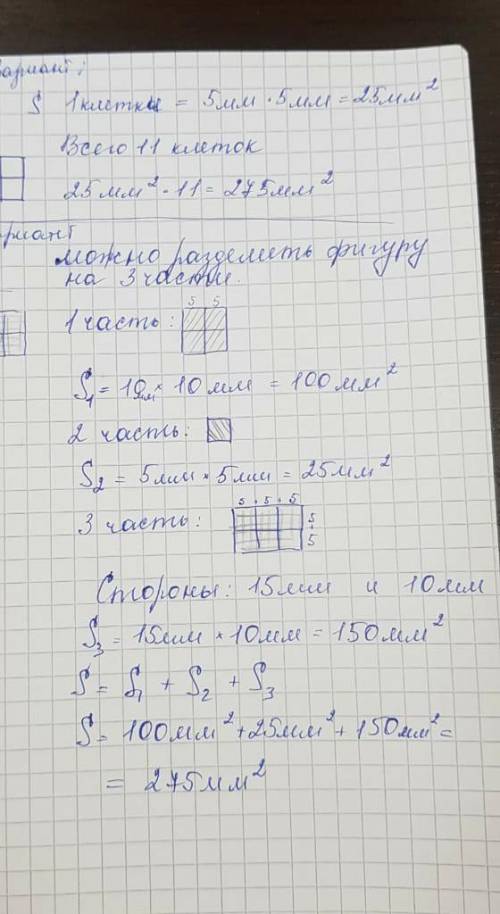 вариант:
S 1 клетки = 5мм · 5мм = 25мм²
Всего 11 клеток
25 мм² · 11 = 275мм²
вариант
можно разделить фигуру
на 3 части.
5 5
1 часть:
S₁ = 10мм × 10 мм = 100 мм²
2 часть:
S₂ = 5мм × 5мм = 25мм²
5 + 5 + 5
3 часть:
5 + 5
Стороны: 15мм и 10мм
S₃ = 15мм × 10мм = 150мм²
S = S₁ + S₂ + S₃
S = 100мм² + 25мм² + 150мм² =
= 275мм²